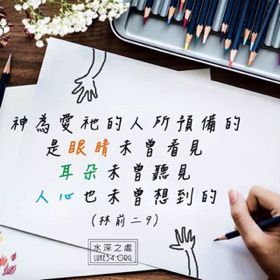 神為愛祂的人所預備的
是眼睛未曾看見
耳朵未曾聽見
人心也未曾想到的
(林前二9)
水深之處
LUKE54.ORG